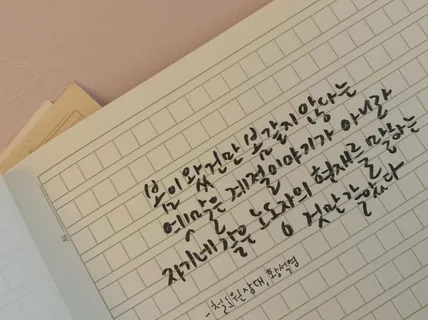 봄이 왔건만 봄 같지 않다는
옛말은 계절이야기가 아니라
자기네 같은 노동자의 현재를 말하는
것만 같았다
- 철도원 삼대, 황석영